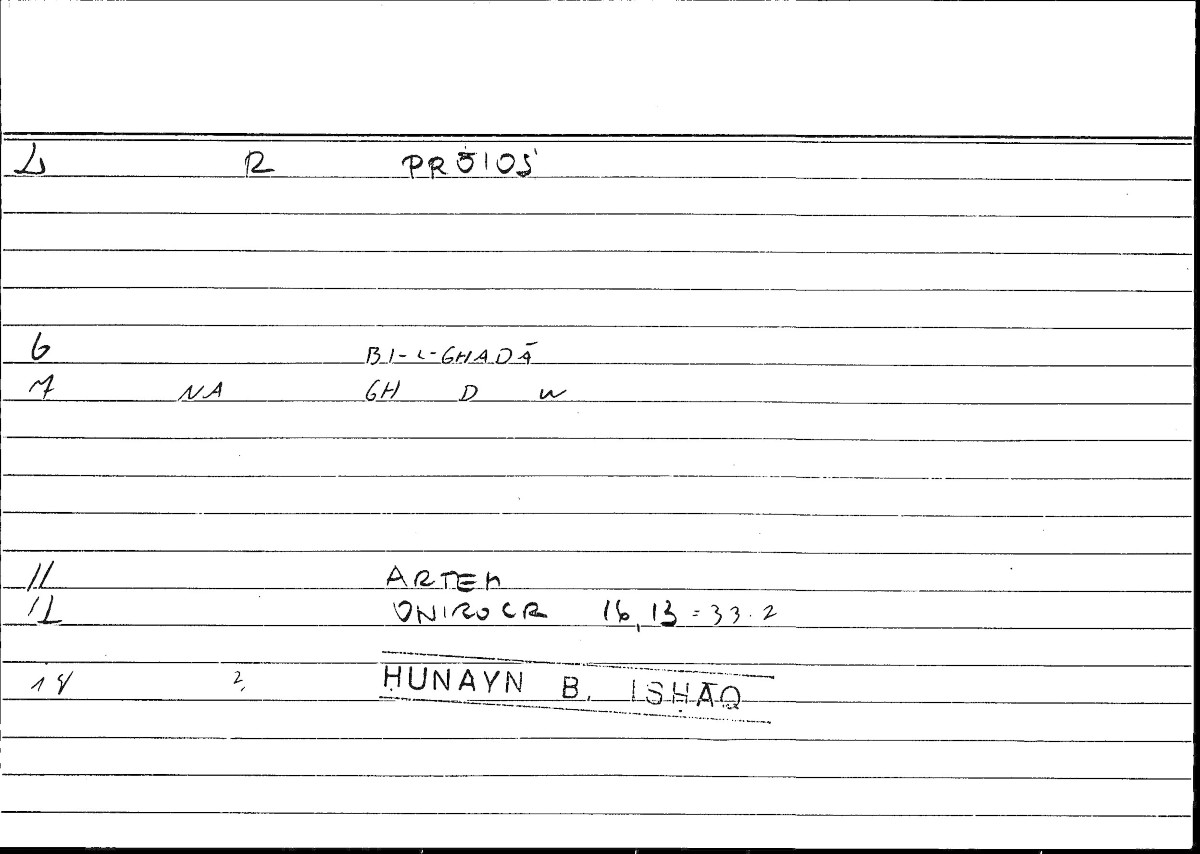 L R PRŌIOS
6 BI-L-GHADĀ
7 NA GH D W
11 ARTEM
12 ONIROCR 16,13 = 33.2
14 2, ḤUNAYN B. ISḤĀQ